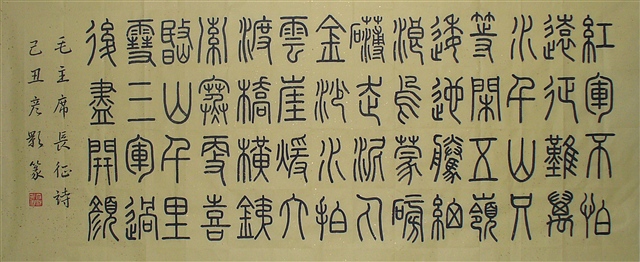 紅軍不怕
遠征難萬
水千山只
等閑五嶺
逶迤騰細
浪烏蒙磅
礴走泥丸
金沙水拍
雲崖煖大
渡橋橫鐵
索寒更喜
岷山千里
雪三軍過
後盡開顏
毛主席長征詩
己丑彦影篆